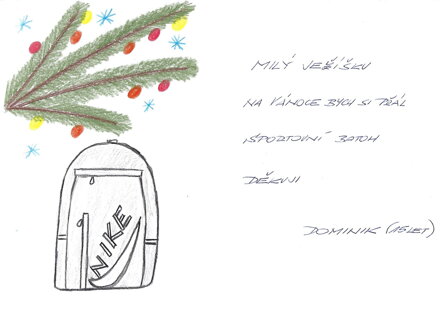 MILÝ JEŽÍŠKU
NA VÁNOCE BYCH SI PŘÁL
SPORTOVNÍ BATOH
DĚKUJI
DOMINIK (15 LET)
NIKE